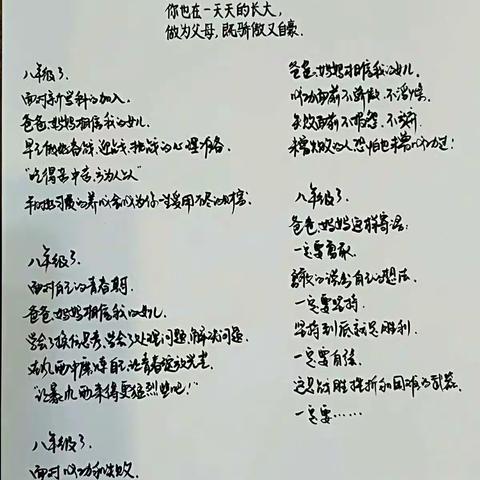 你也在一天天的长大,
做为父母,既骄傲又自豪.
八年级了.
面对新学科的加入.
爸爸、妈妈相信我的女儿.
早已做好备战、迎战、挑战的心理准备.
"吃得苦中苦,方为人上人"
年的好习惯的养成会成为你一生受用不尽的财富.
八年级了.
面对自己的青春期.
爸爸、妈妈相信我的女儿.
学会了换位思考、学会了处理问题、解决问题.
在风雨中磨炼自己,让青春绽放光芒.
"让暴风雨来得更猛烈些吧!"
八年级了.
面对成功和失败.
爸爸、妈妈相信我的女儿.
成功面前不骄傲、不浮燥.
失败面前不抱怨、不放弃.
未尝失败的人恐怕也未尝成功过!
八年级了.
爸爸、妈妈这样寄语:
一定要勇敢.
勇敢的说出自己的想法.
一定要坚持.
坚持到底就是胜利.
一定要自信.
这是战胜挫折和困难的武器.
一定要……